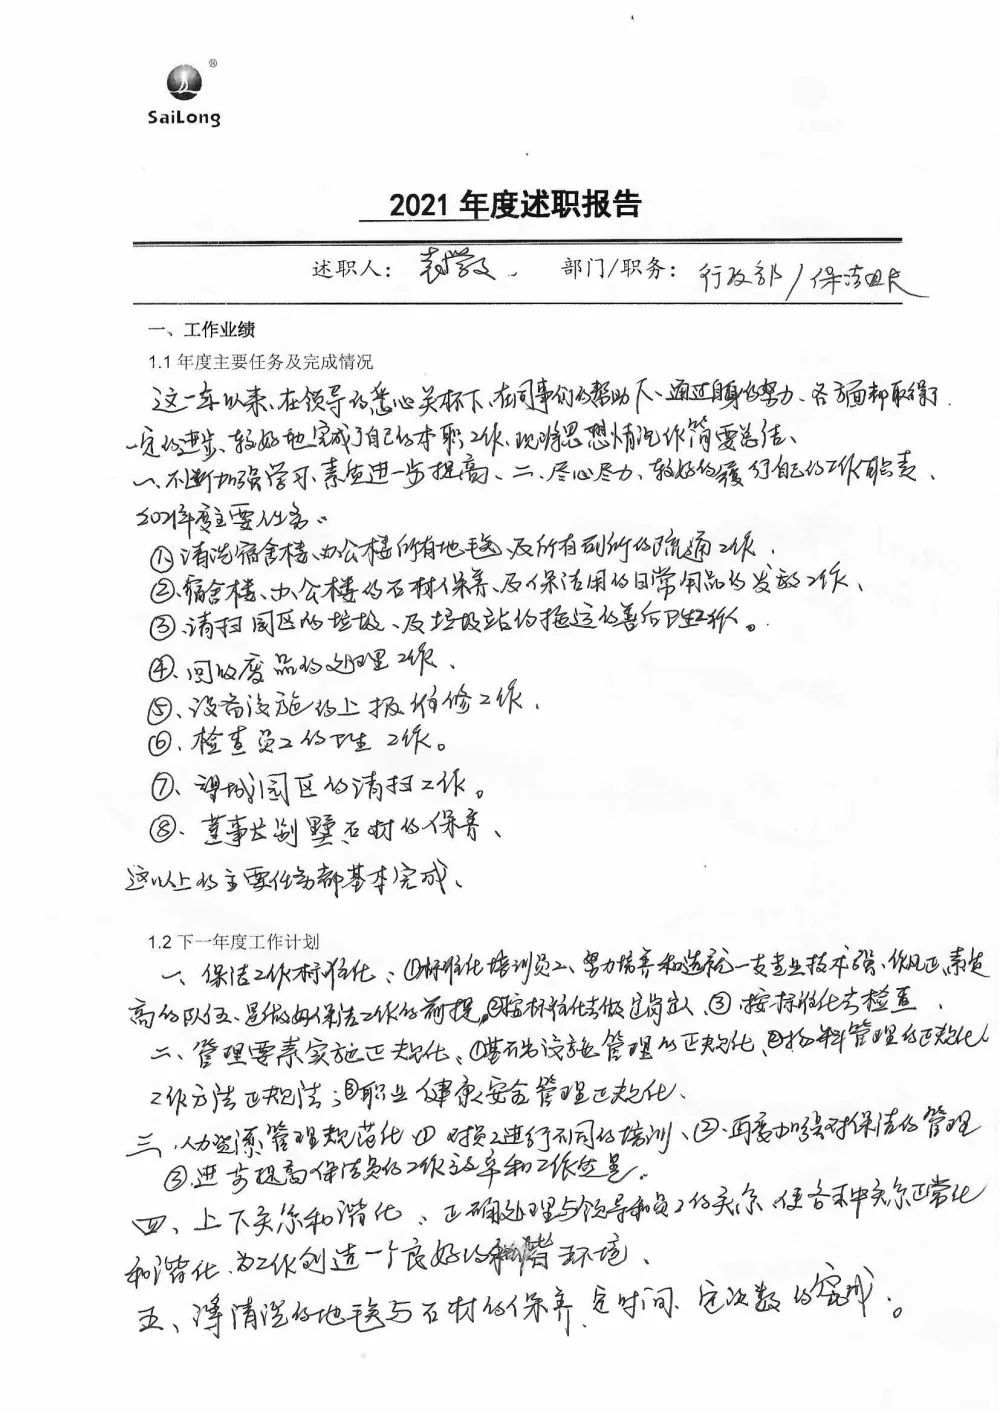 SaiLong
2021 年度述职报告
述职人：袁学文. 部门/职务：行政部/保洁班长
一、工作业绩
1.1 年度主要任务及完成情况
这一年以来、在领导的悉心关怀下、在同事们的帮助下、通过自身的努力、各方面都取得了
一定的进步、较好地完成了自己的本职工作、现将思想情况作简要总结、
一、不断加强学习、素质进一步提高、二、尽心尽力、较好的履行自己的工作职责、
2021年度主要任务：
①、清洗宿舍楼、办公楼所有地毯、及所有厕所的疏通工作、
②、宿舍楼、办公楼的石材保养、及保洁用的日常用品的发放工作、
③、清扫园区的垃圾、及垃圾站的拖运的善后卫生工作。
④、回收废品的处理工作、
⑤、设备设施的上报维修工作、
⑥、检查员工的卫生工作。
⑦、望城园区的清扫工作。
⑧、董事长别墅石材的保养、
这以上的主要任务都基本完成、
1.2 下一年度工作计划
一、保洁工作标准化、①标准化培训员工、努力培养和造就一支专业技术强、作风正、素质
高的队伍、是做好保洁工作的前提、②按标准化去做定岗定人、③按标准化去检查、
二、管理要素实施正规化、①基石出设施管理的正规化、②物料管理的正规化
工作方法正规法；③职业健康安全管理正规化、
三、人力资源管理规范化 ① 对员工进行不同的培训、②、再度加强对保洁的管理
③、进步提高保洁员的工作效率和工作质量、
四、上下关系和谐化、正确处理与领导和员工的关系、使各种关系正常化
和谐化、为工作创造一个良好的和谐环境、
五、清洗的地毯与石材的保养、定时间、定次数的完成。